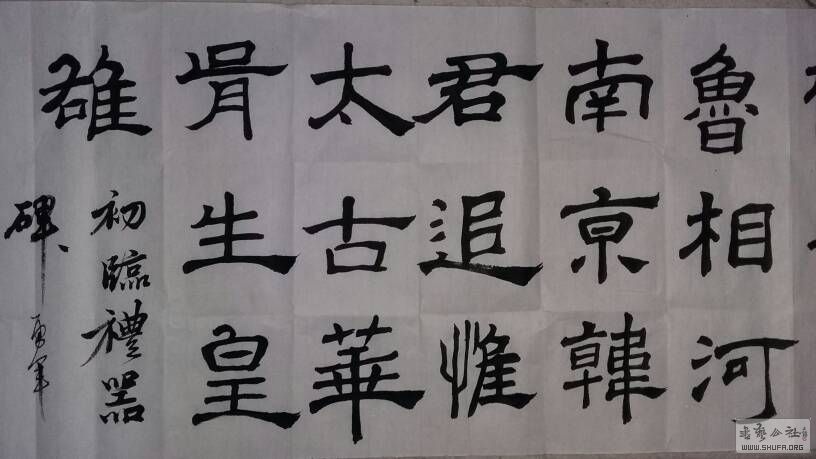 魯相河
南京韓
君追惟
太古華
胥生皇
雄
初臨禮器
碑
書藝公社
WWW.SHUFA.ORG